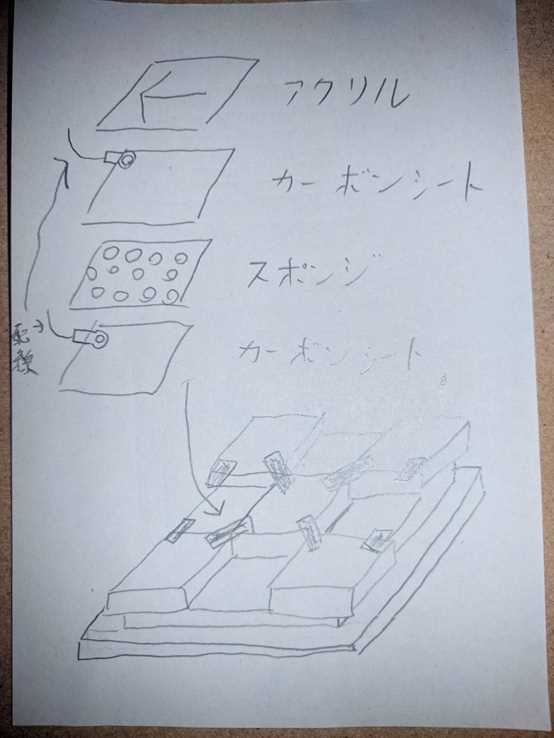 アクリル
カーボンシート
スポンジ
カーボンシート
配線